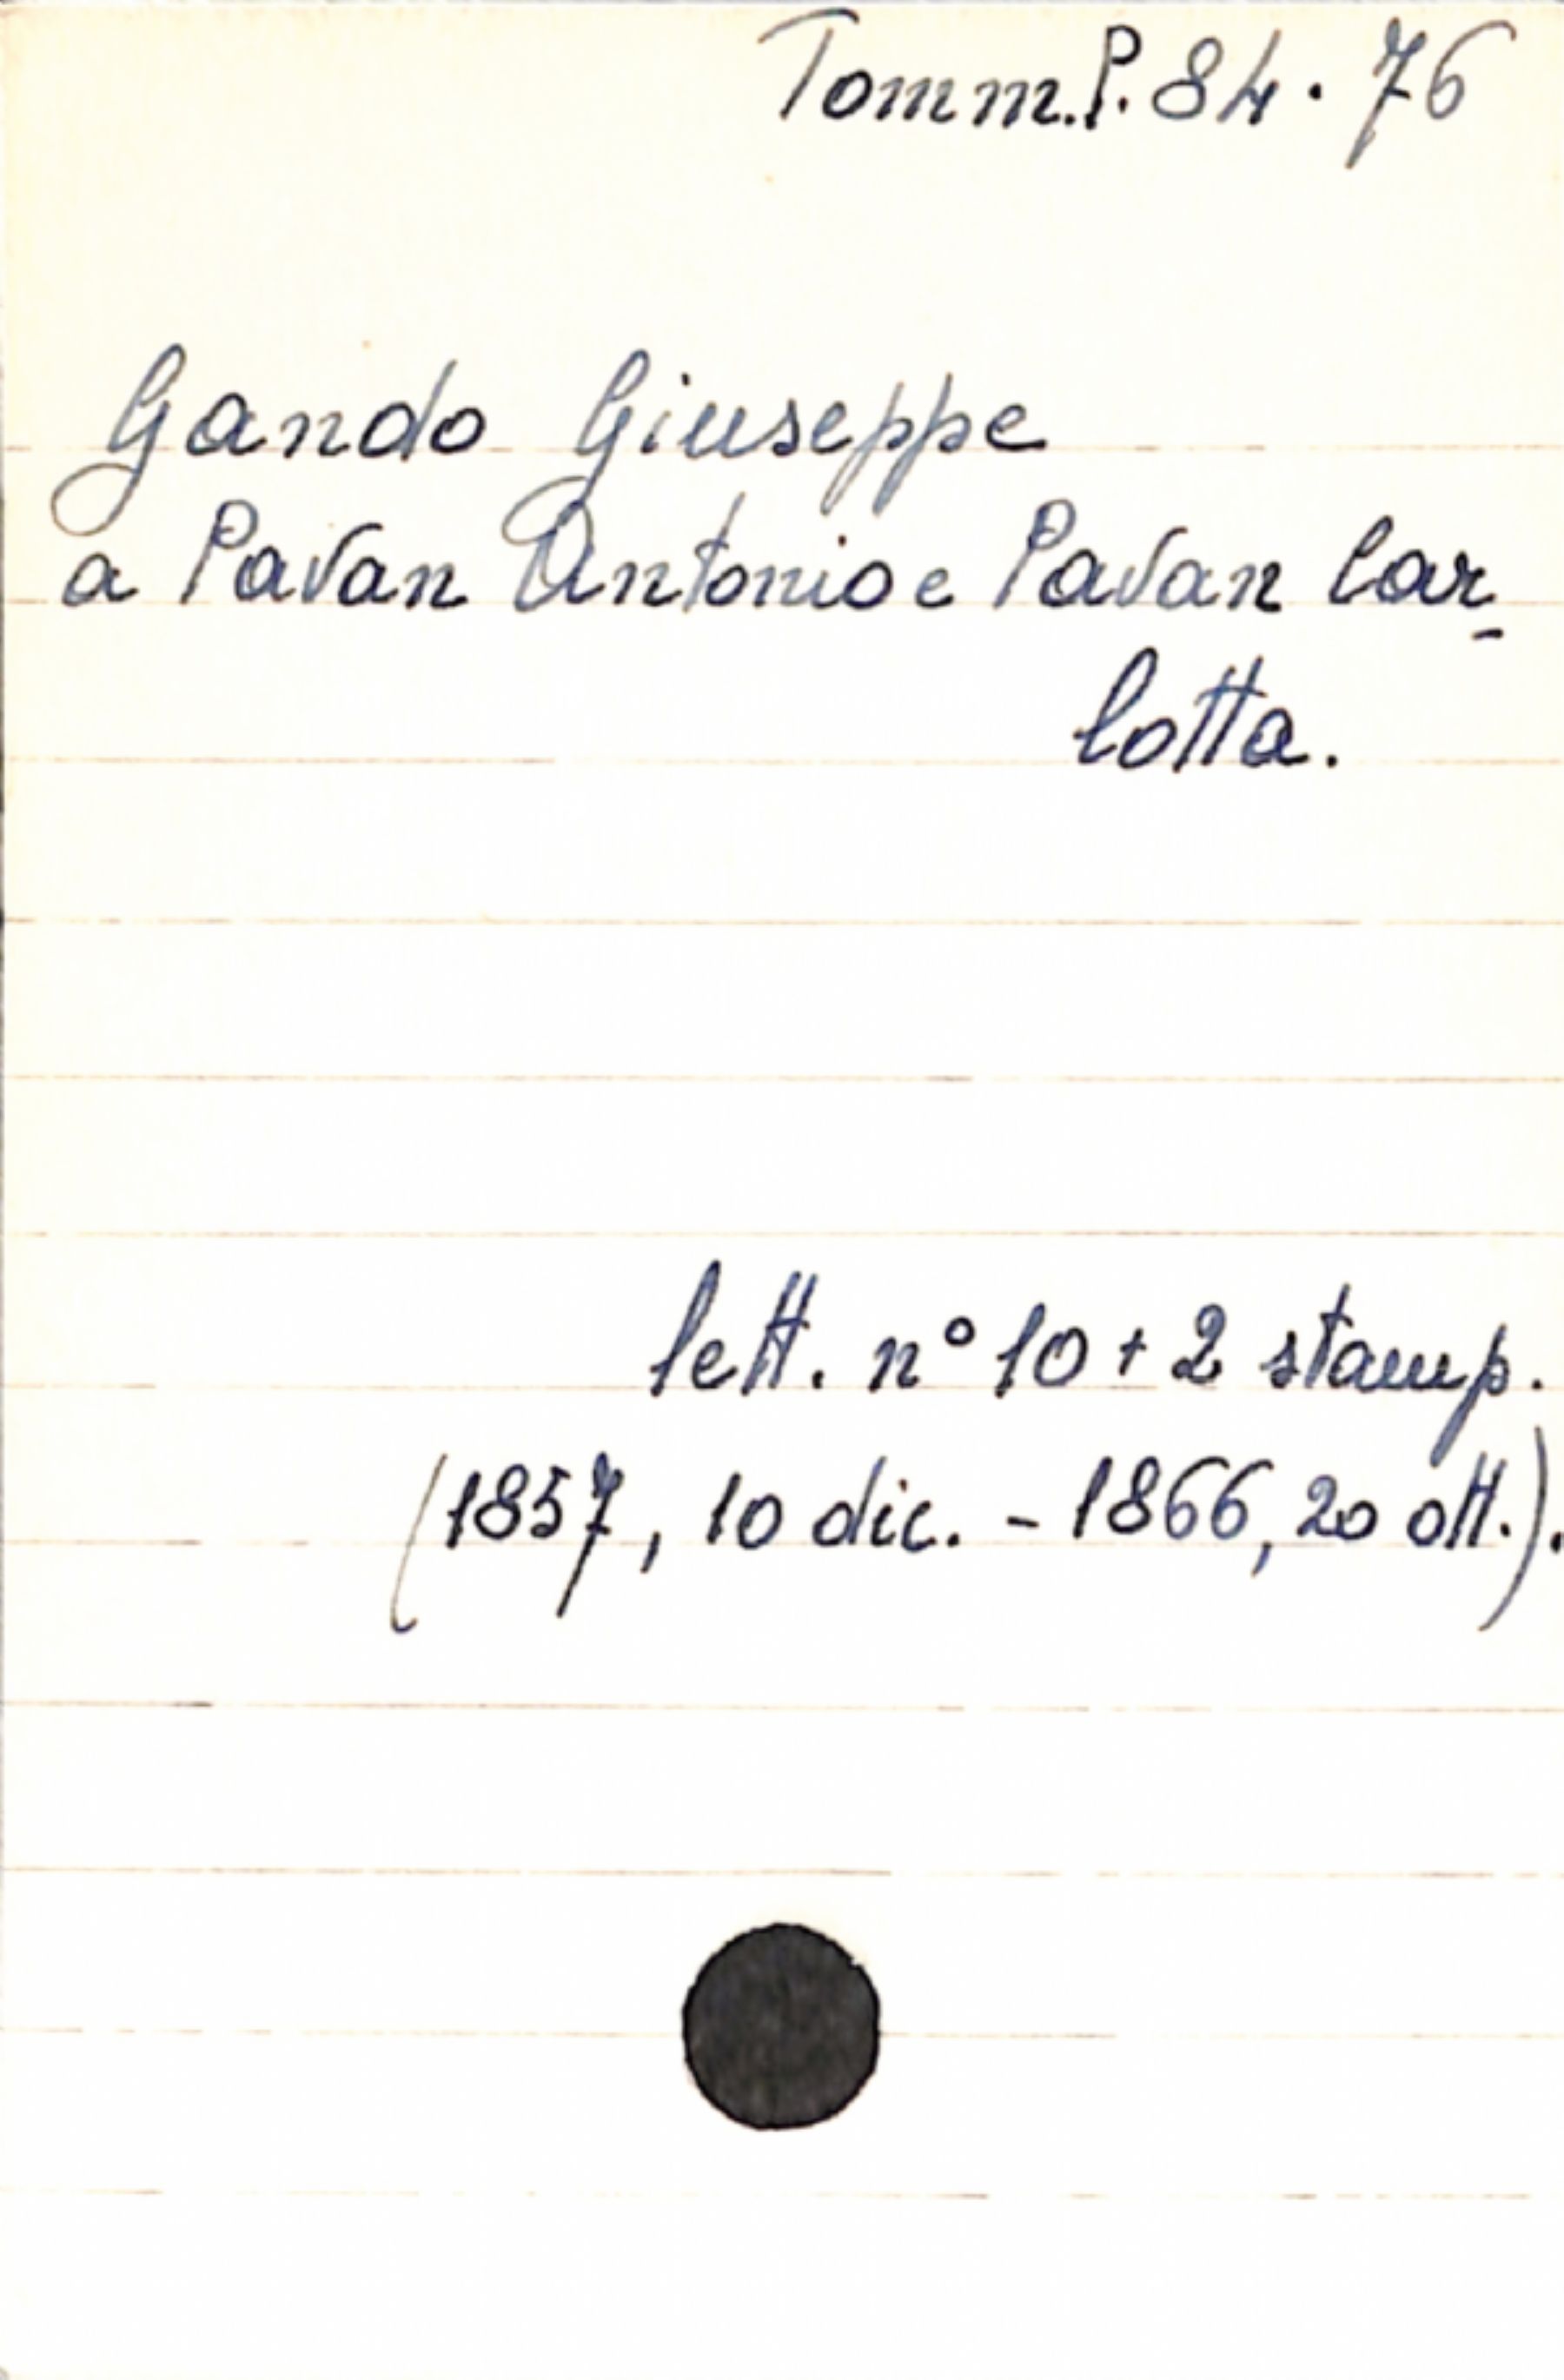 Tomm.P.84.76
Gando Giuseppe
a Pavan Antonio e Pavan Car-
lotta.
lett. n° 10 + 2 stamp.
(1857, 10 dic. - 1866, 20 ott.).